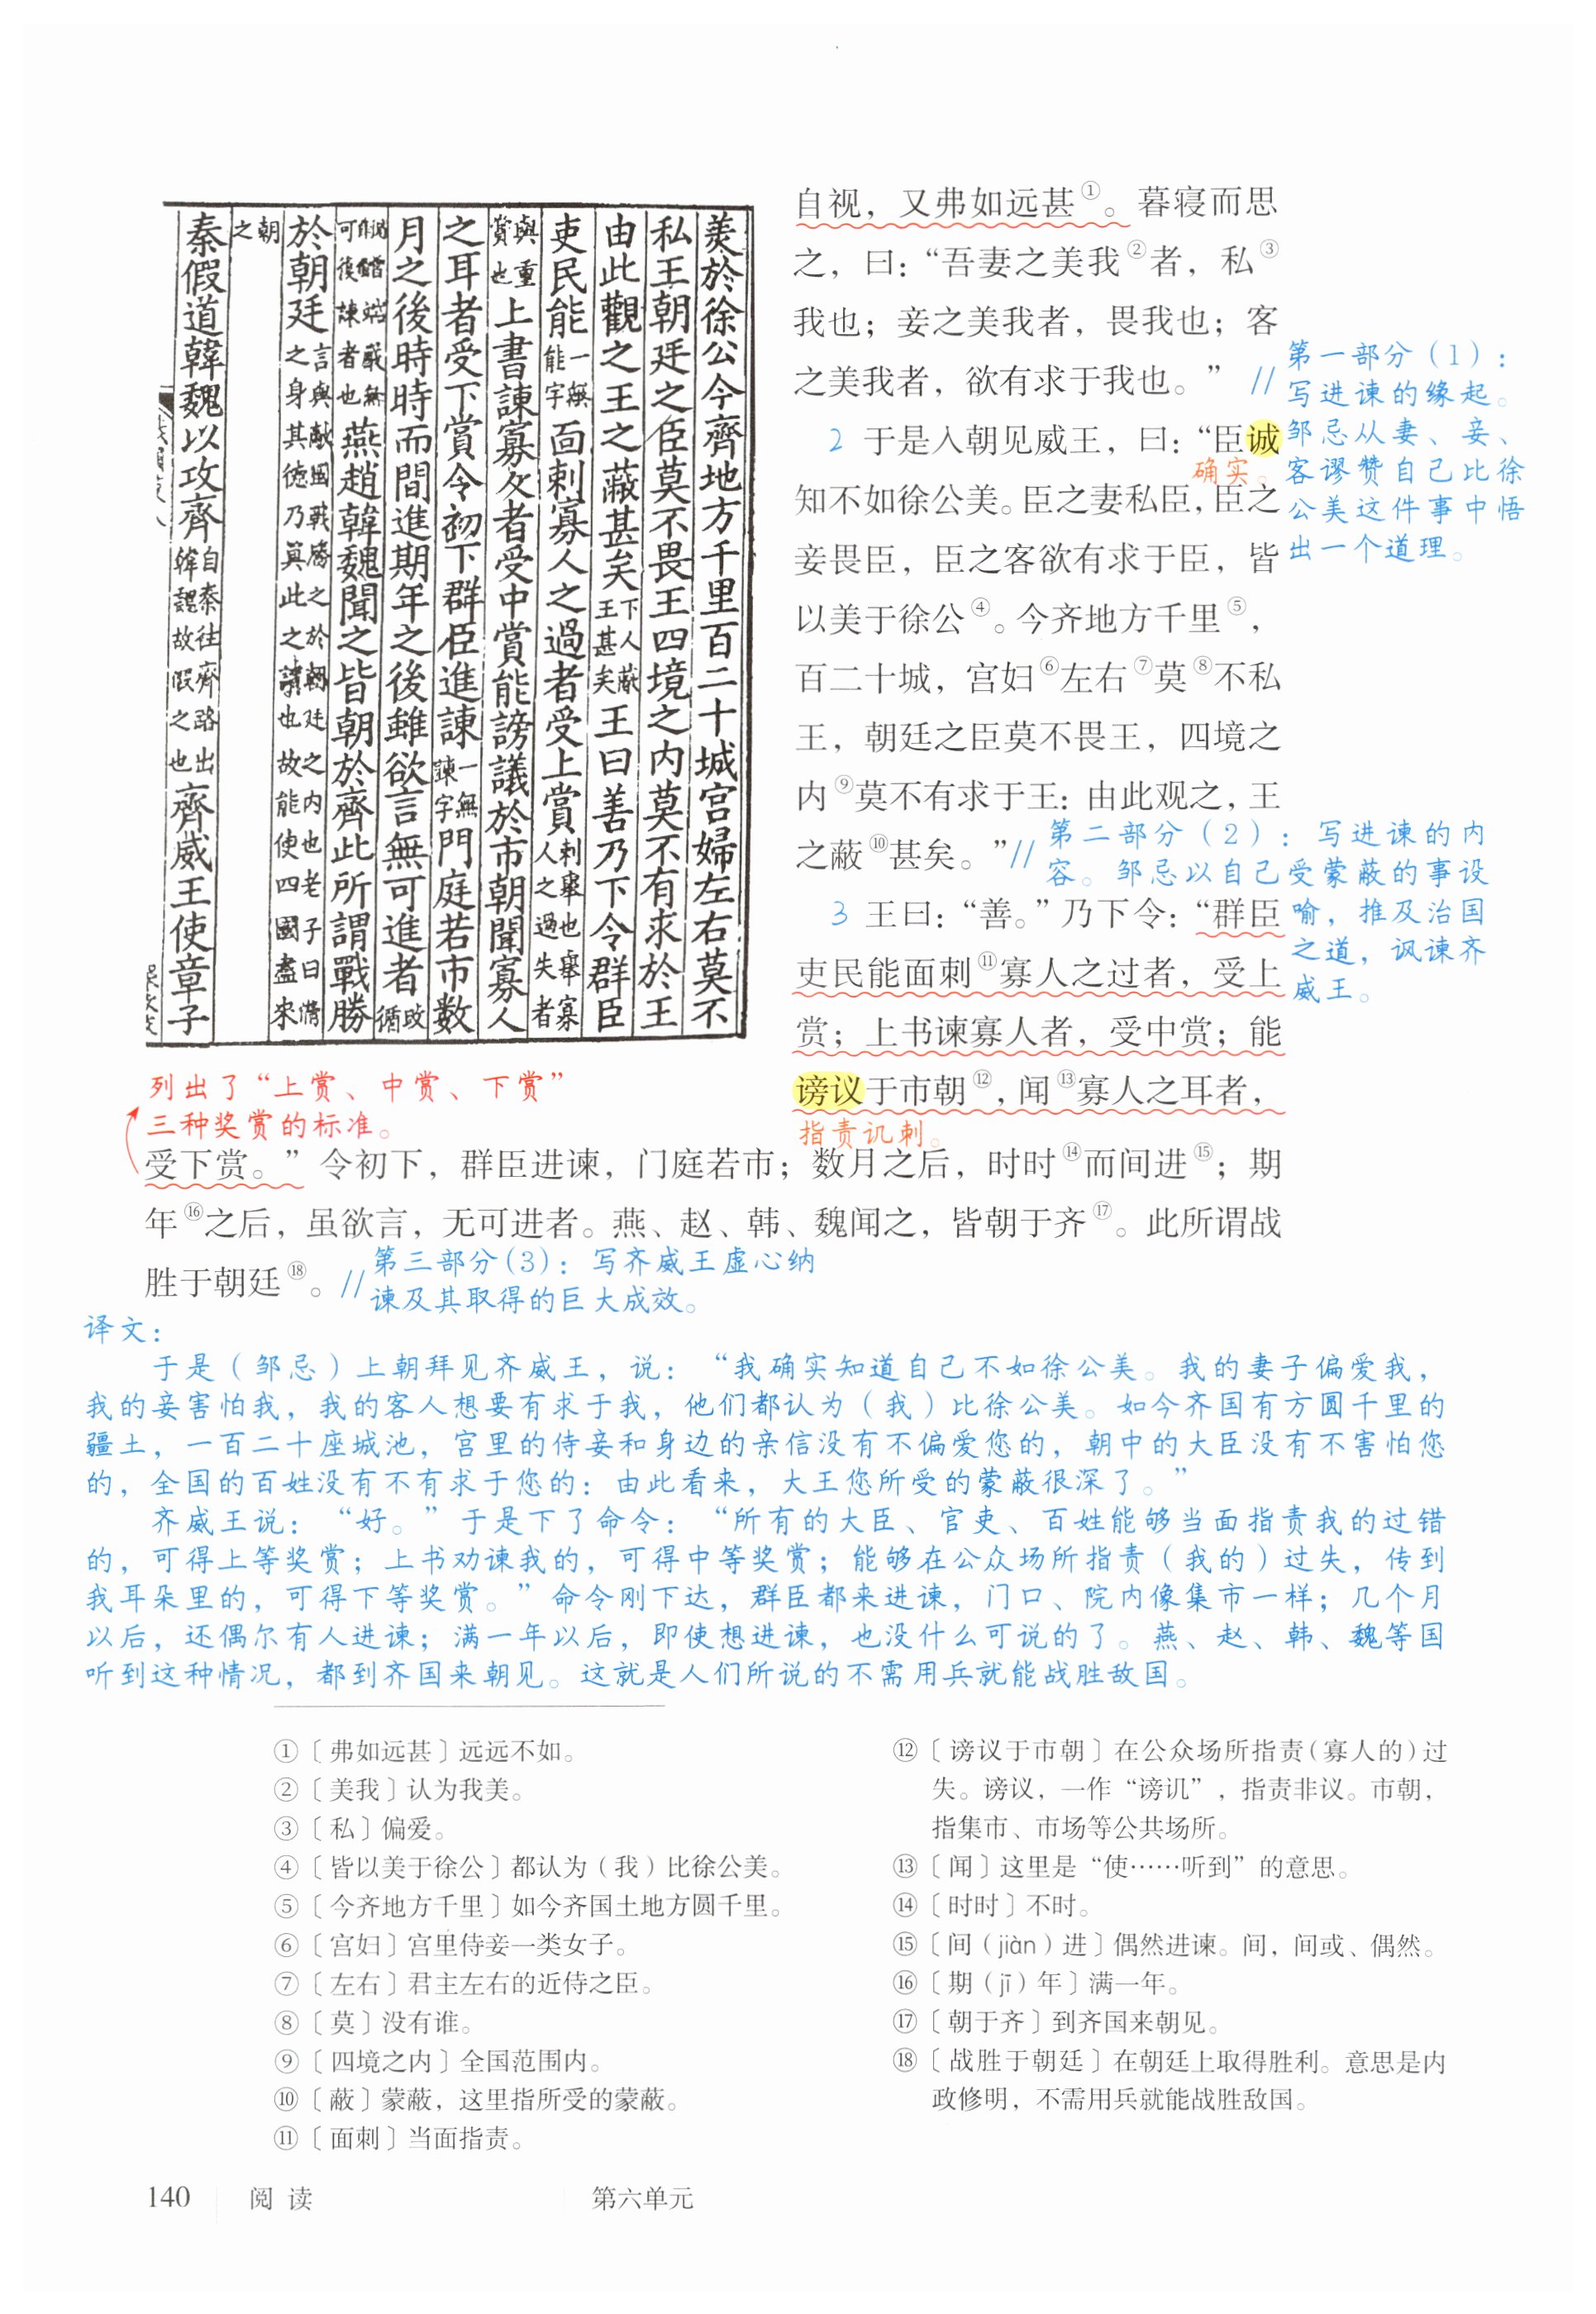 自视，又弗如远甚①。暮寝而思
之，曰：“吾妻之美我②者，私③
我也；妾之美我者，畏我也；客
之美我者，欲有求于我也。”//
第一部分（1）：
写进谏的缘起。
邹忌从妻、妾、
客谬赞自己比徐
公美这件事中悟
出一个道理。
2 于是入朝见威王，曰：“臣诚
确实。
知不如徐公美。臣之妻私臣，臣之
妾畏臣，臣之客欲有求于臣，皆
以美于徐公④。今齐地方千里⑤，
百二十城，宫妇⑥左右⑦莫⑧不私
王，朝廷之臣莫不畏王，四境之
内⑨莫不有求于王：由此观之，王
之蔽⑩甚矣。”//
第二部分（2）：写进谏的内
容。邹忌以自己受蒙蔽的事设
喻，推及治国
之道，讽谏齐
威王。
3 王曰：“善。”乃下令：“群臣
吏民能面刺⑪寡人之过者，受上
赏；上书谏寡人者，受中赏；能
谤议于市朝⑫，闻⑬寡人之耳者，
指责讥刺。
羙於徐公今齊地方千里百二十城宮婦左右莫不
私王朝廷之臣莫不畏王四境之内莫不有求於王
由此觀之王之蔽甚矣王曰善乃下令群臣
吏民能面刺寡人之過者受上賞
上書諫寡人者受中賞能謗議於市朝聞寡人
之耳者受下賞令初下群臣進諫門庭若市數
月之後時時而間進期年之後雖欲言無可進者
燕趙韓魏聞之皆朝於齊此所謂戰勝
於朝廷
秦假道韓魏以攻齊齊威王使章子
列出了“上赏、中赏、下赏”
三种奖赏的标准。
受下赏。”令初下，群臣进谏，门庭若市；数月之后，时时⑭而间进⑮；期
年⑯之后，虽欲言，无可进者。燕、赵、韩、魏闻之，皆朝于齐⑰。此所谓战
胜于朝廷⑱。//
第三部分（3）：写齐威王虚心纳
谏及其取得的巨大成效。
译文：
于是（邹忌）上朝拜见齐威王，说：“我确实知道自己不如徐公美。我的妻子偏爱我，
我的妾害怕我，我的客人想要有求于我，他们都认为（我）比徐公美。如今齐国有方圆千里的
疆土，一百二十座城池，宫里的侍妾和身边的亲信没有不偏爱您的，朝中的大臣没有不害怕您
的，全国的百姓没有不有求于您的：由此看来，大王您所受的蒙蔽很深了。”
齐威王说：“好。”于是下了命令：“所有的大臣、官吏、百姓能够当面指责我的过错
的，可得上等奖赏；上书劝谏我的，可得中等奖赏；能够在公众场所指责（我的）过失，传到
我耳朵里的，可得下等奖赏。”命令刚下达，群臣都来进谏，门口、院内像集市一样；几个月
以后，还偶尔有人进谏；满一年以后，即使想进谏，也没什么可说的了。燕、赵、韩、魏等国
听到这种情况，都到齐国来朝见。这就是人们所说的不需用兵就能战胜敌国。
①〔弗如远甚〕远远不如。
②〔美我〕认为我美。
③〔私〕偏爱。
④〔皆以美于徐公〕都认为（我）比徐公美。
⑤〔今齐地方千里〕如今齐国土地方圆千里。
⑥〔宫妇〕宫里侍妾一类女子。
⑦〔左右〕君主左右的近侍之臣。
⑧〔莫〕没有谁。
⑨〔四境之内〕全国范围内。
⑩〔蔽〕蒙蔽，这里指所受的蒙蔽。
⑪〔面刺〕当面指责。
⑫〔谤议于市朝〕在公众场所指责（寡人的）过
失。谤议，一作“谤讥”，指责非议。市朝，
指集市、市场等公共场所。
⑬〔闻〕这里是“使……听到”的意思。
⑭〔时时〕不时。
⑮〔间（jiàn）进〕偶然进谏。间，间或、偶然。
⑯〔期（jī）年〕满一年。
⑰〔朝于齐〕到齐国来朝见。
⑱〔战胜于朝廷〕在朝廷上取得胜利。意思是内
政修明，不需用兵就能战胜敌国。
140 阅读 第六单元